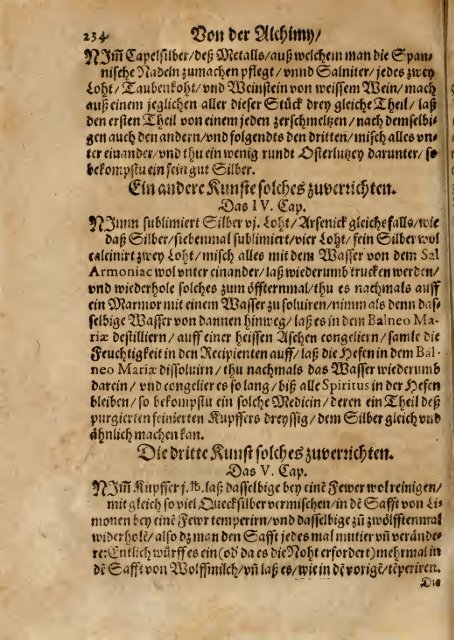 234 Von der Alchimy/
NIm̃ Capelsilber/deß Metalls/auß welchem man die Span-
nische Nadeln zumachen pflegt/vnnd Salniter/jedes zwey
Loht/Taubenkoht/vnd Weinstein von weissem Wein/mach
auß einem jeglichen aller dieser Stück drey gleiche Theil/laß
den ersten Theil von einem jeden zerschmeltzen/nach demselbi-
gen auch den andern/vnd folgendts den dritten/misch alles vn-
ter einander/vnd thu ein wenig rundt Osterlutzey darunter/so
bekompstu ein fein gut Silber.
Ein andere Kunste solches zuverrichten.
Das IV. Cap.
NImm sublimiert Silber vj. Loht/Arsenick gleichsfalls/wie
daß Silber/siebenmal sublimiert/vier Loht/fein Silber wol
calcinirt zwey Loht/misch alles mit dem Wasser von dem Sal
Armoniac wol vnter einander/laß wiederumb trucken werden/
vnd wiederhole solches zum öffternmal/thu es nachmals auff
ein Marmor mit einem Wasser zu soluiren/nimm als denn das-
selbige Wasser von dannen hinweg/laß es in dem Balneo Ma-
riæ destilliern/auff einer heissen Aschen congeliern/samle die
Feuchtigkeit in den Recipienten auff/laß die Hefen in dem Bal-
neo Mariæ dissoluirn/thu nachmals das Wasser wiederumb
darein/vnd congelier es so lang/biß alle Spiritus in der Hefen
bleiben/so bekompstu ein solche Medicin/deren ein Theil deß
purgierten feinierten Kupffers dreyssig/dem Silber gleich vnd
ähnlich machen kan.
Die dritte Kunst solches zuverrichten.
Das V. Cap.
NIm̃ Kupffer j. ℔. laß dasselbige bey einē Fewer wol reinigen/
mit gleich so viel Quecksilber vermischen/in dē Safft von Li-
monen bey einē Fewr temperirn/vnd dasselbige zů zwölfftenmal
widerholē/also dz man den Safft jedes mal mutier vñ verände-
re:Entlich würff es ein(ob da es die Noht erfordert)mehrmal in
dē Safft von Wolffmilch/vñ laß es/wie in dē vorigē/tēperiren.
Die